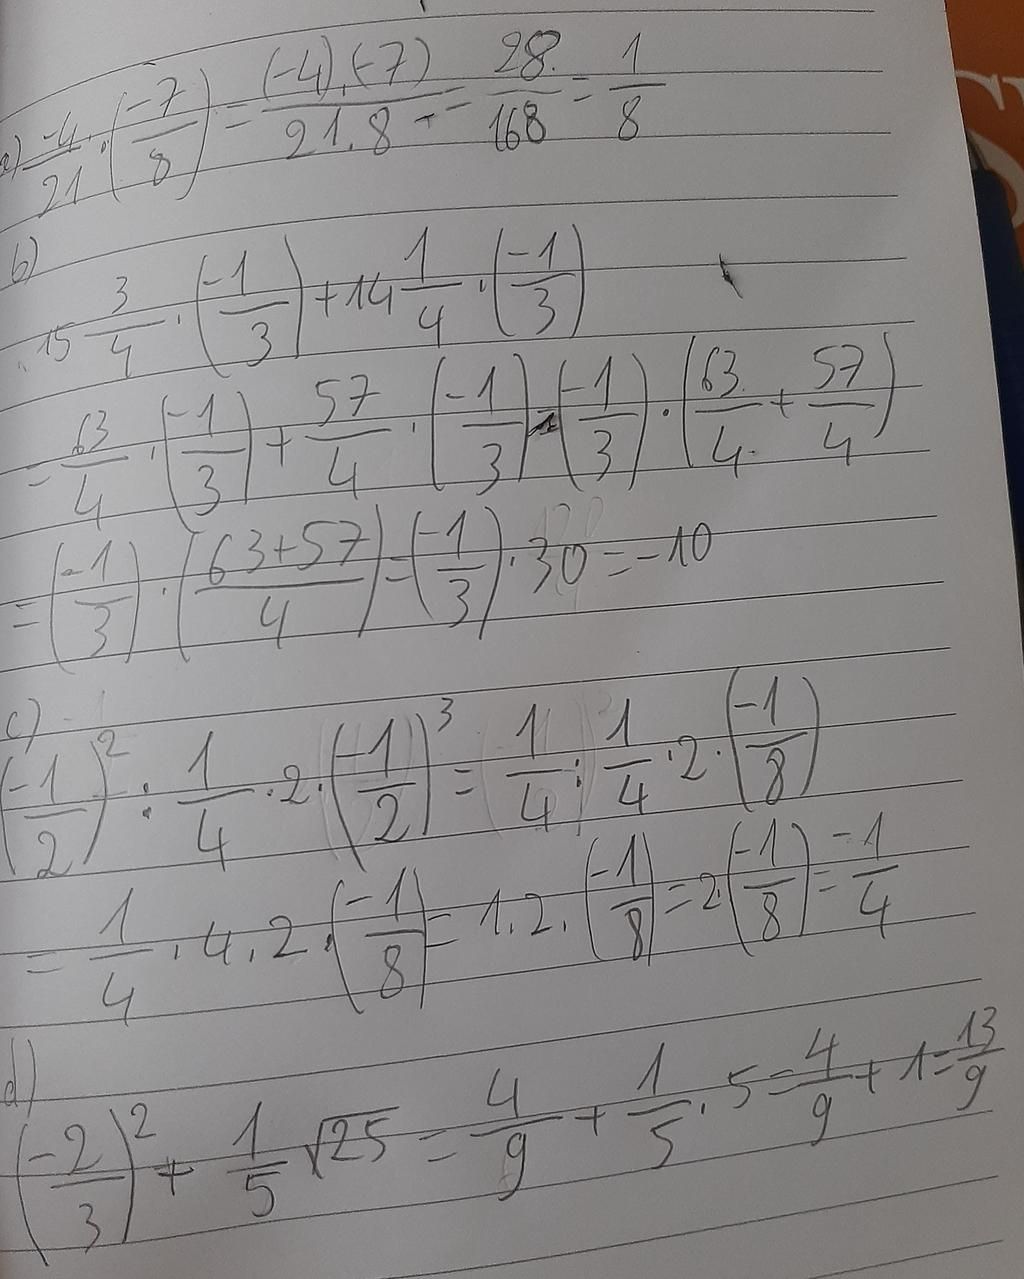 a) -4/21 · (-7/8) = (-4).(-7)/21.8 = 28/168 = 1/8
b)
15 3/4 · (-1/3) + 14 1/4 · (-1/3)
= 63/4 · (-1/3) + 57/4 · (-1/3) = (-1/3) · (63/4 + 57/4)
= (-1/3) · (63+57/4) = (-1/3) · 30 = -10
c)
(-1/2)² : 1/4 · 2 · (-1/2)³ = 1/4 : 1/4 · 2 · (-1/8)
= 1/4 · 4 · 2 · (-1/8) = 1.2. (-1/8) = 2.(-1/8) = -1/4
d)
(-2/3)² + 1/5 √25 = 4/9 + 1/5 . 5 = 4/9 + 1 = 13/9